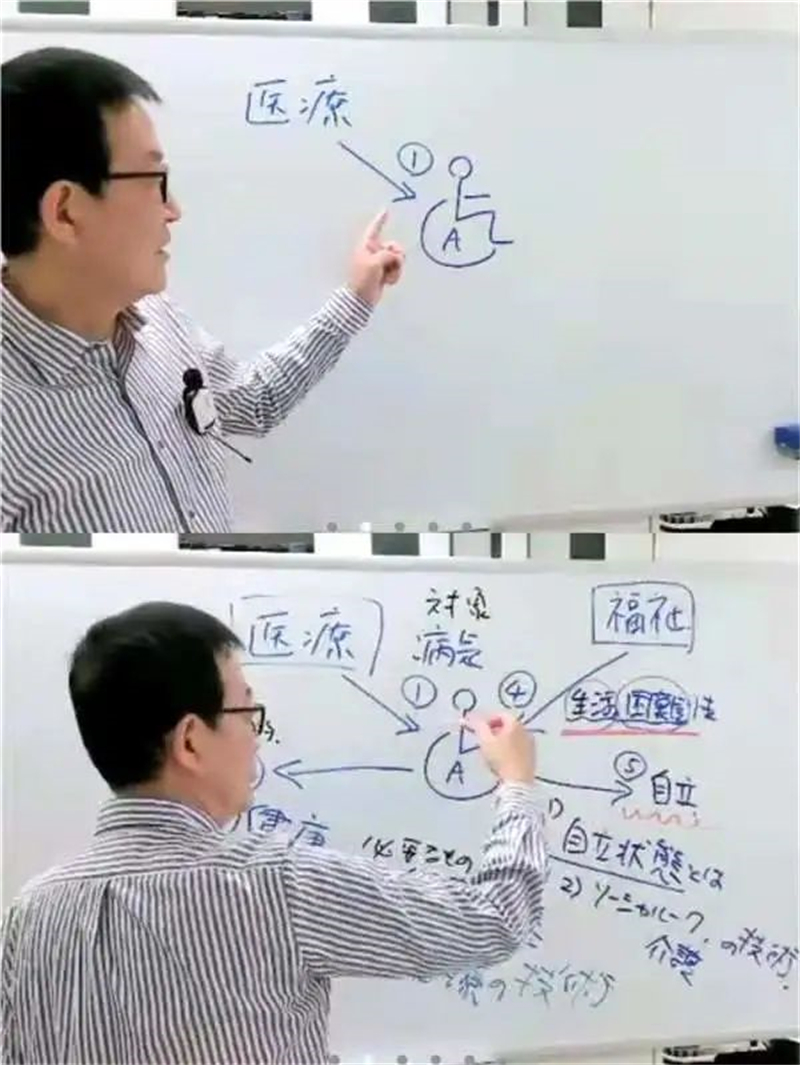 医療
①
A
医療
対象
病気
福祉
① ④
生活困難性
A
⑤
自立
健康
必要ごとの
1)
自立状態とは
2) ソーシャルワーク
介護 の技術
の技術